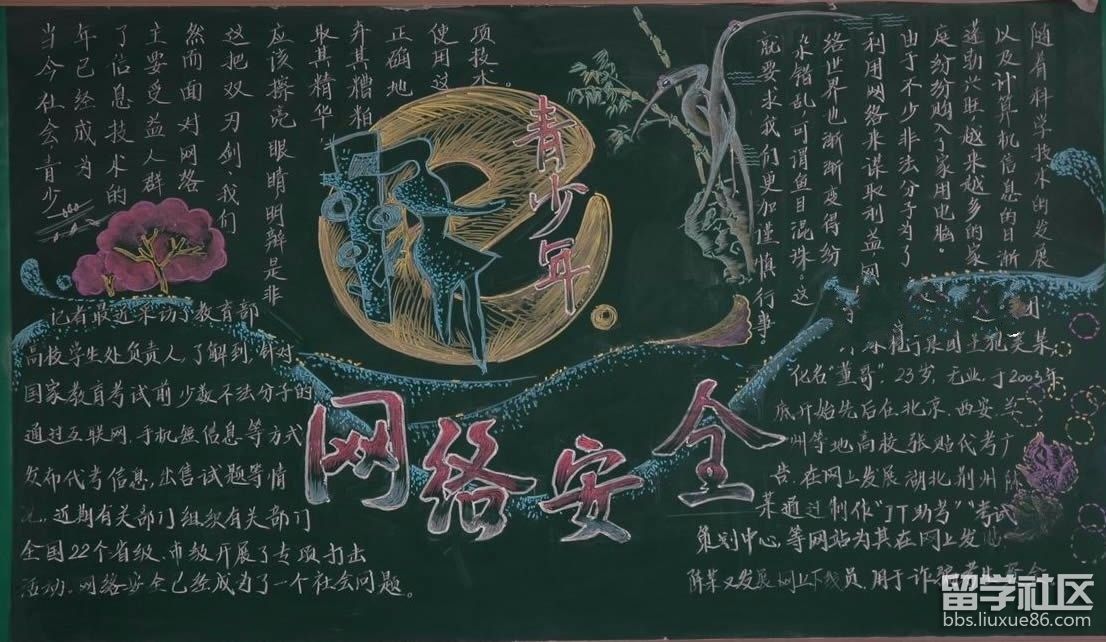 当今社会青少
年已经成为
了信息技术的
主要受益人群
然而面对网络
这把双刃剑,我们
应该擦亮眼睛明辩是非
取其精华
弃其糟粕
正确地
使用这
项技术。
青少年
随着科学技术的发展
以及计算机信息的日渐
蓬勃兴旺越来越多的家
庭纷纷购入了家用电脑。
由于不少非法分子为了
利用网络来谋取利益,网
络世界也渐渐变得纷
杂错乱,可谓鱼目混珠。这
就要求我们更加谨慎行事。
网络安全
记者最近采访了教育部
高校学生处负责人,了解到,针对
国家教育考试前少数不法分子的
通过互联网、手机短信息等方式
发布代考信息,出售试题等情
近期有关部门组织有关部门
全国22个省级、市级开展了专项打击
活动。网络安全已经成为了一个社会问题。
这
集团主犯吴某,
化名"董哥",23岁,无业,于2003年
底开始先后在北京、西安、兰
州等地高校张贴代考广
告,在网上发展湖北荆州陈
某通过制作"JT助考""考试
策划中心,等网站为其在网上发
陈某又发展网上下线员,用于诈骗
留学社区
bbs.liuxue86.com